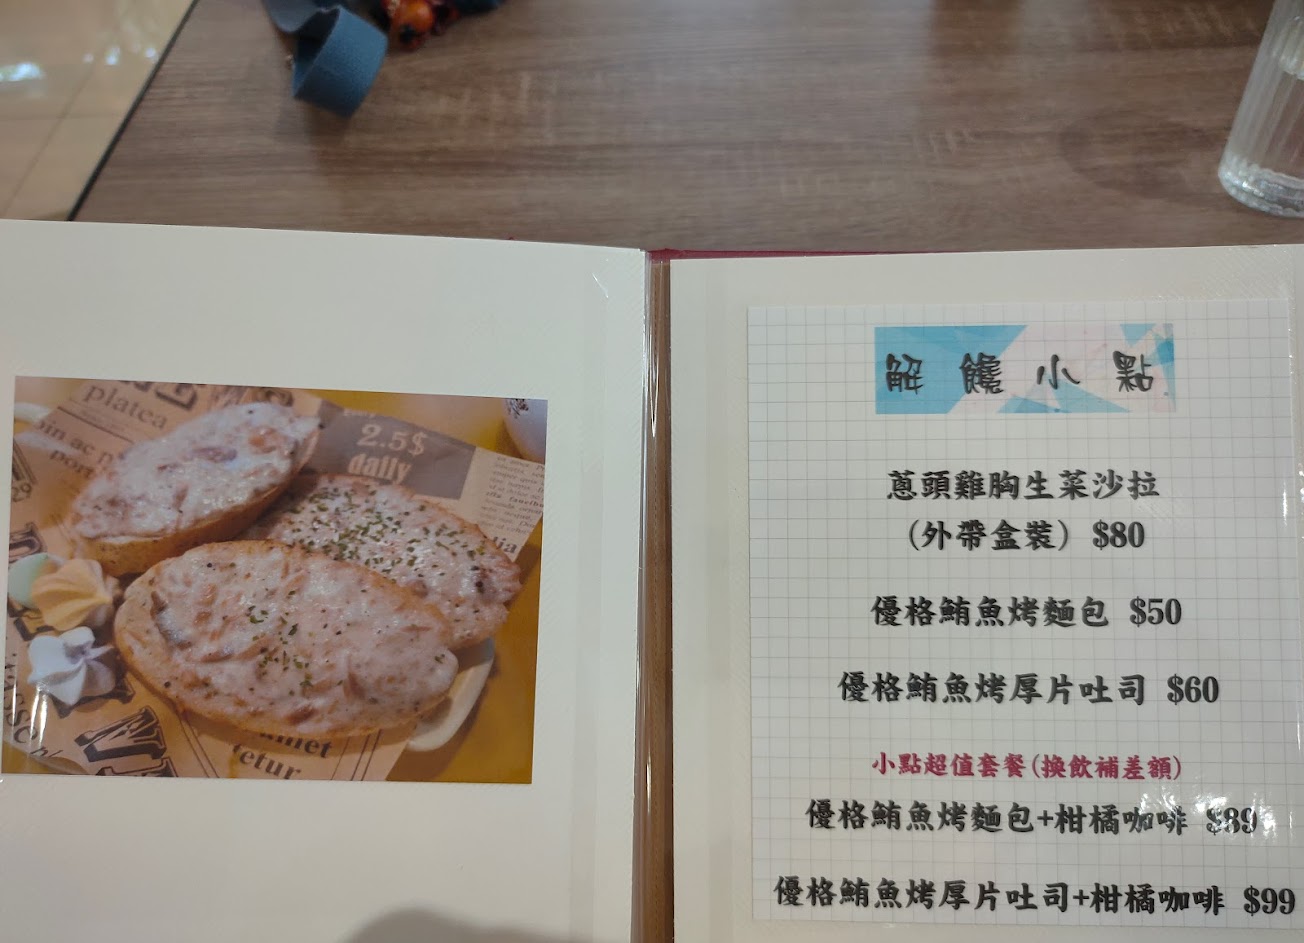 platea
2.5$
daily
tetur
解饞小點
蔥頭雞胸生菜沙拉
(外帶盒裝) $80
優格鮪魚烤麵包 $50
優格鮪魚烤厚片吐司 $60
小點超值套餐(換飲補差額)
優格鮪魚烤麵包+柑橘咖啡 $89
優格鮪魚烤厚片吐司+柑橘咖啡 $99